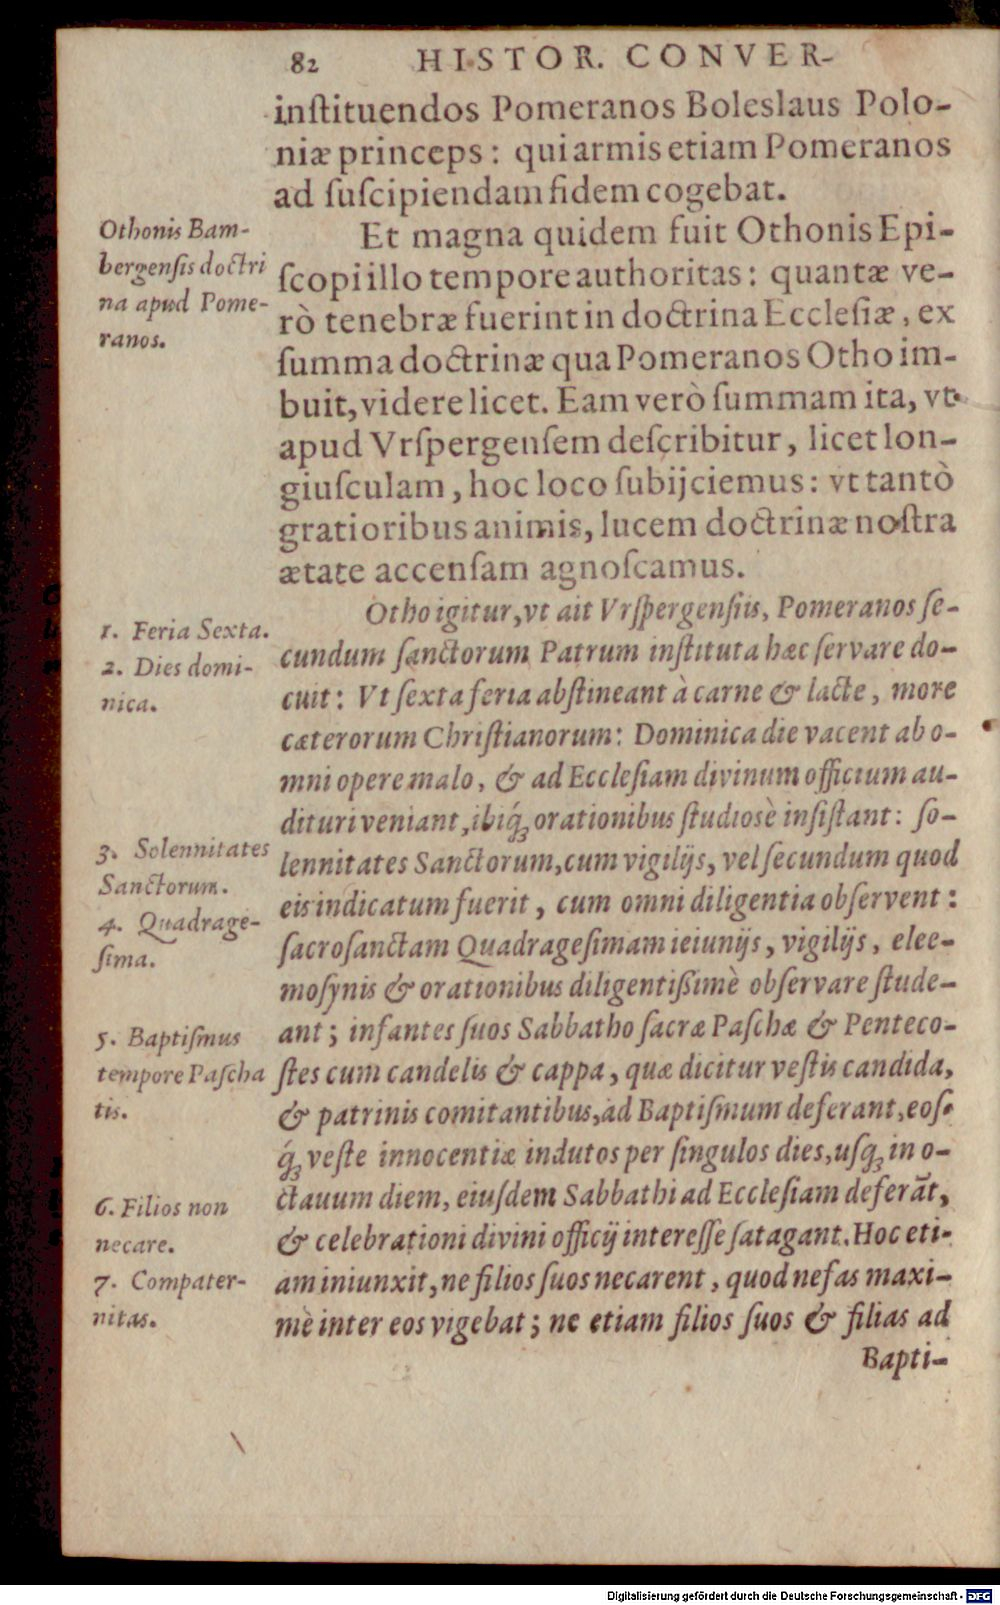 82 HISTOR. CONVER-
inſtituendos Pomeranos Boleslaus Polo-
niæ princeps: qui armis etiam Pomeranos
ad ſuſcipiendam fidem cogebat.
Othonis Bam-
bergenſis doctri
na apud Pome-
ranos.
Et magna quidem fuit Othonis Epi-
ſcopi illo tempore authoritas: quantæ ve-
rò tenebræ fuerint in doctrina Eccleſiæ, ex
ſumma doctrinæ qua Pomeranos Otho im-
buit, videre licet. Eam verò ſummam ita, vt
apud Vrſpergenſem deſcribitur, licet lon-
giuſculam, hoc loco ſubijciemus: vt tantò
gratioribus animis, lucem doctrinæ noſtra
ætate accenſam agnoſcamus.
1. Feria Sexta.
2. Dies domi-
nica.
Otho igitur, vt ait Vrſpergenſis, Pomeranos ſe-
cundum ſanctorum Patrum inſtituta hæc ſervare do-
cuit: Vt ſexta feria abſtineant à carne & lacte, more
cæterorum Chriſtianorum: Dominica die vacent ab o-
mni opere malo, & ad Eccleſiam divinum officium au-
dituri veniant, ibiq́ꝫ orationibus ſtudiosè inſiſtant: ſo-
3. Solennitates
Sanctorum.
4. Quadrage-
ſima.
lennitates Sanctorum, cum vigilijs, vel ſecundum quod
eis indicatum fuerit, cum omni diligentia obſervent:
ſacroſanctam Quadrageſimam ieiunijs, vigilijs, elee-
moſynis & orationibus diligentißimè obſervare ſtude-
5. Baptiſmus
tempore Paſcha
tis.
ant; infantes ſuos Sabbatho ſacræ Paſchæ & Penteco-
ſtes cum candelis & cappa, quæ dicitur veſtis candida,
& patrinis comitantibus, ad Baptiſmum deferant, eoſ-
q́ꝫ veſte innocentiæ indutos per ſingulos dies, uſqꝫ in o-
6. Filios non
necare.
7. Compater-
nitas.
ctauum diem, eiuſdem Sabbathi ad Eccleſiam deferãt,
& celebrationi divini officij intereſſe ſatagant. Hoc eti-
am iniunxit, ne filios ſuos necarent, quod nefas maxi-
mè inter eos vigebat; ne etiam filios ſuos & filias ad
Bapti-
Digitalisierung gefördert durch die Deutsche Forschungsgemeinschaft - DFG